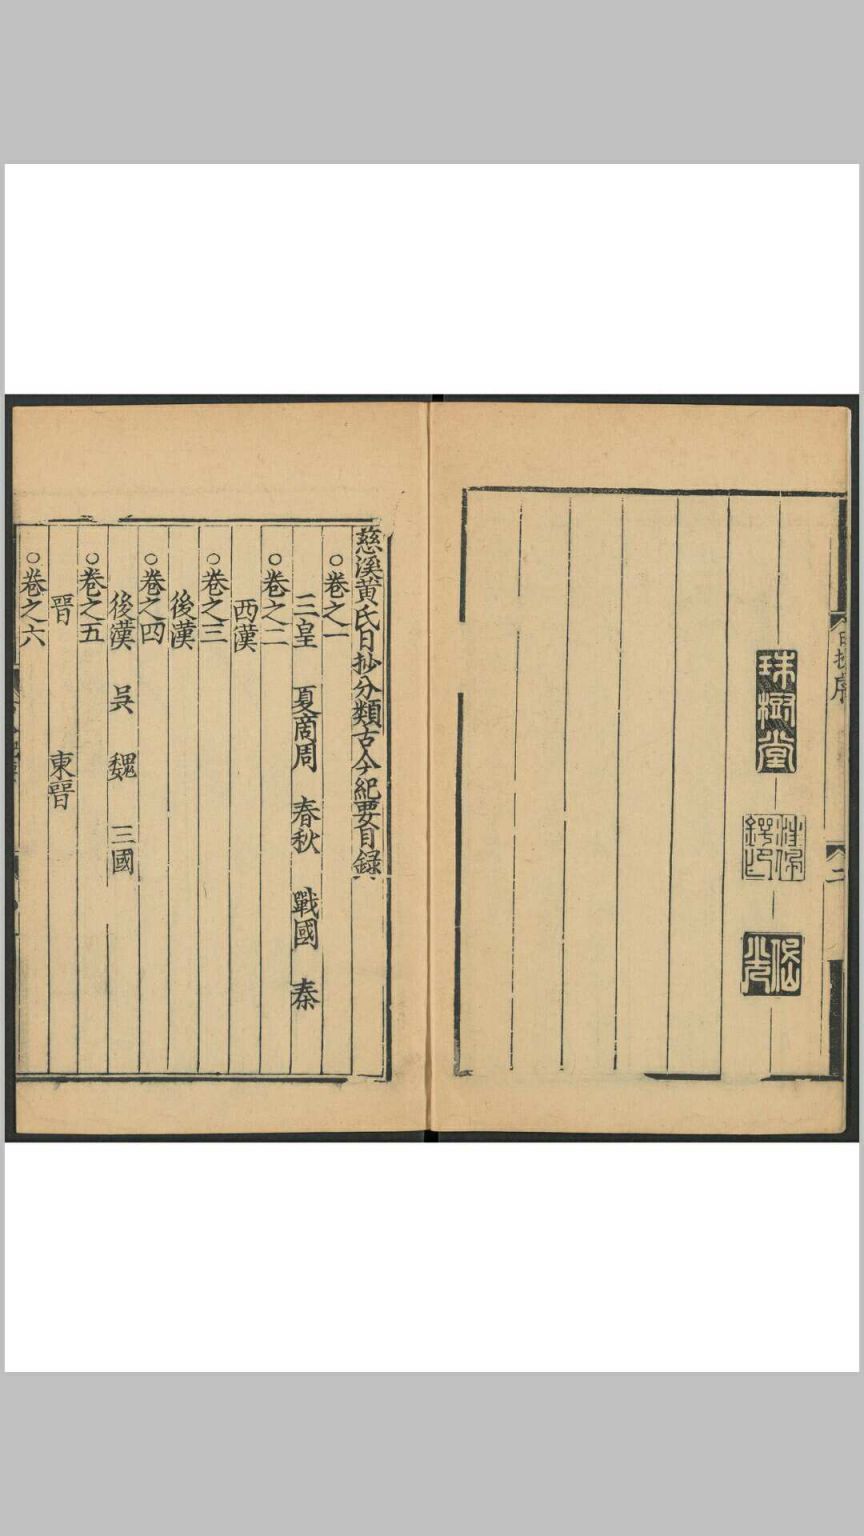 日抄序
二
珠樹堂
慈溪黄氏日抄分類古今紀要目録
○卷之一
三皇 夏商周 春秋 戰國 秦
○卷之二
西漢
○卷之三
後漢
○卷之四
後漢 吳 魏 三國
○卷之五
晋 東晋
○卷之六